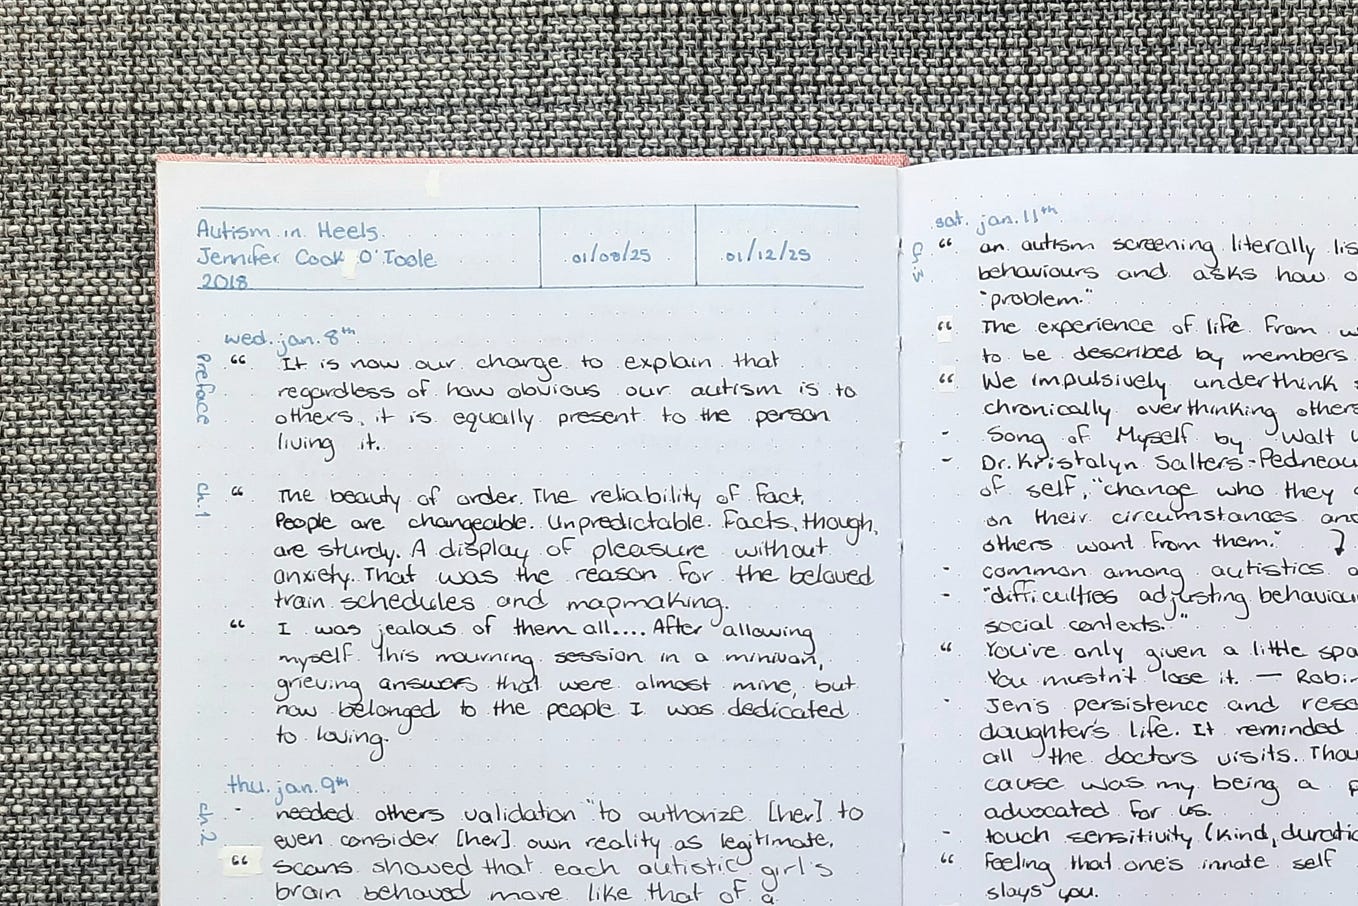 Autism in Heels
Jennifer Cook O'Toole
2018
01/08/25
01/12/25
wed. jan. 8th
Preface
“ It is now our charge to explain that
regardless of how obvious our autism is to
others, it is equally present to the person
living it.
ch.1
“ The beauty of order. The reliability of fact.
People are changeable. Unpredictable. Facts, though,
are sturdy. A display of pleasure without
anxiety. That was the reason for the beloved
train schedules and mapmaking.
“ I was jealous of them all.... After allowing
myself this mourning session in a minivan,
grieving answers that were almost mine, but
now belonged to the people I was dedicated
to loving.
thu. jan. 9th
ch.2
- needed others validation "to authorize [her] to
even consider [her] own reality as legitimate.
“ Scans showed that each autistic girl's
brain behaved more like that of a
sat. jan. 11th
ch.3
“ an autism screening literally lis
behaviours and asks how o
"problem."
“ The experience of life from w
to be described by members
“ We impulsively underthink
chronically overthinking others
- Song of Myself by Walt
- Dr. Kristalyn Salters-Pedneau
of self, "change who they
on their circumstances and
others want from them."
- common among autistics
- "difficulties adjusting behaviou
social contexts."
“ You're only given a little spa
You mustn't lose it. — Robi
- Jen's persistence and rese
daughter's life. It reminded
all the doctors visits. Thou
cause was my being a
advocated for us.
- touch sensitivity (kind, duratio
“ Feeling that one's innate self
slays you.